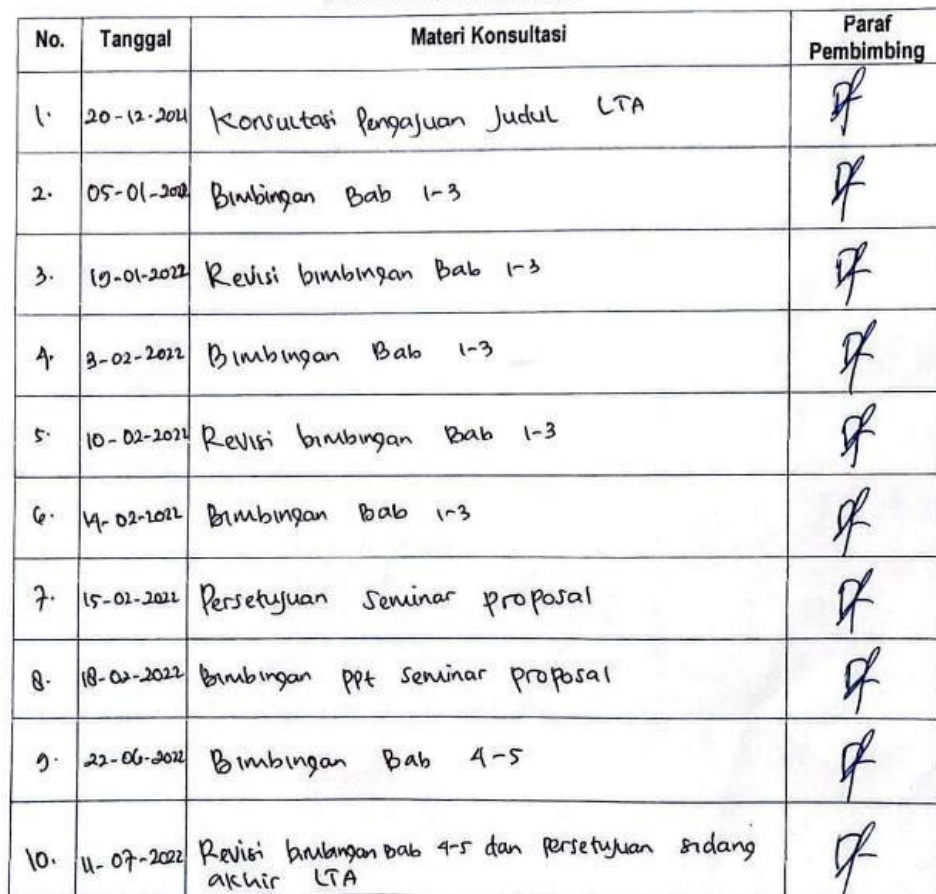 No. Tanggal Materi Konsultasi Paraf Pembimbing
1. 20-12-2021 Konsultasi Pengajuan Judul LTA
2. 05-01-2022 Bimbingan Bab 1-3
3. 19-01-2022 Revisi bimbingan Bab 1-3
4. 3-02-2022 Bimbingan Bab 1-3
5. 10-02-2022 Revisi bimbingan Bab 1-3
6. 14-02-2022 Bimbingan Bab 1-3
7. 15-02-2022 Persetujuan Seminar proposal
8. 18-02-2022 Bimbingan ppt seminar proposal
9. 22-06-2022 Bimbingan Bab 4-5
10. 11-07-2022 Revisi bimbingan Bab 4-5 dan persetujuan sidang
akhir LTA